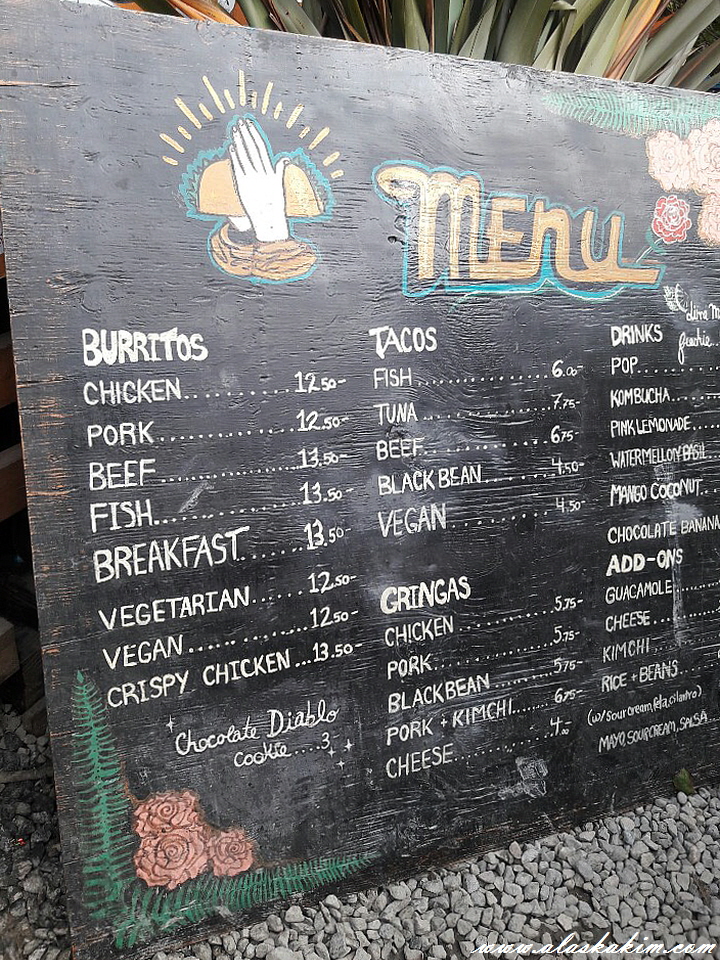 MENU
BURRITOS
CHICKEN....................12.50-
PORK....................12.50-
BEEF....................13.50-
FISH....................13.50-
BREAKFAST..........13.50-
VEGETARIAN......12.50-
VEGAN....................12.50-
CRISPY CHICKEN...13.50-
Chocolate Diablo
Cookie....3
TACOS
FISH....................6.00-
TUNA....................7.75-
BEEF....................6.75-
BLACK BEAN..........4.50-
VEGAN....................4.50-
GRINGAS
CHICKEN....................5.75-
PORK....................5.75-
BLACKBEAN..........5.75-
PORK + KIMCHI......6.75-
CHEESE....................4.00-
DRINKS
POP..........
KOMBUCHA..........
PINK LEMONADE....
WATERMELLON BASIL
MANGO COCONUT..
CHOCOLATE BANANA
ADD-ONS
GUACAMOLE..........
CHEESE..........
KIMCHI..........
RICE + BEANS......
(w/ sour cream, feta, cilantro)
MAYO, SOURCREAM, SALSA...
www.alaskakim.com